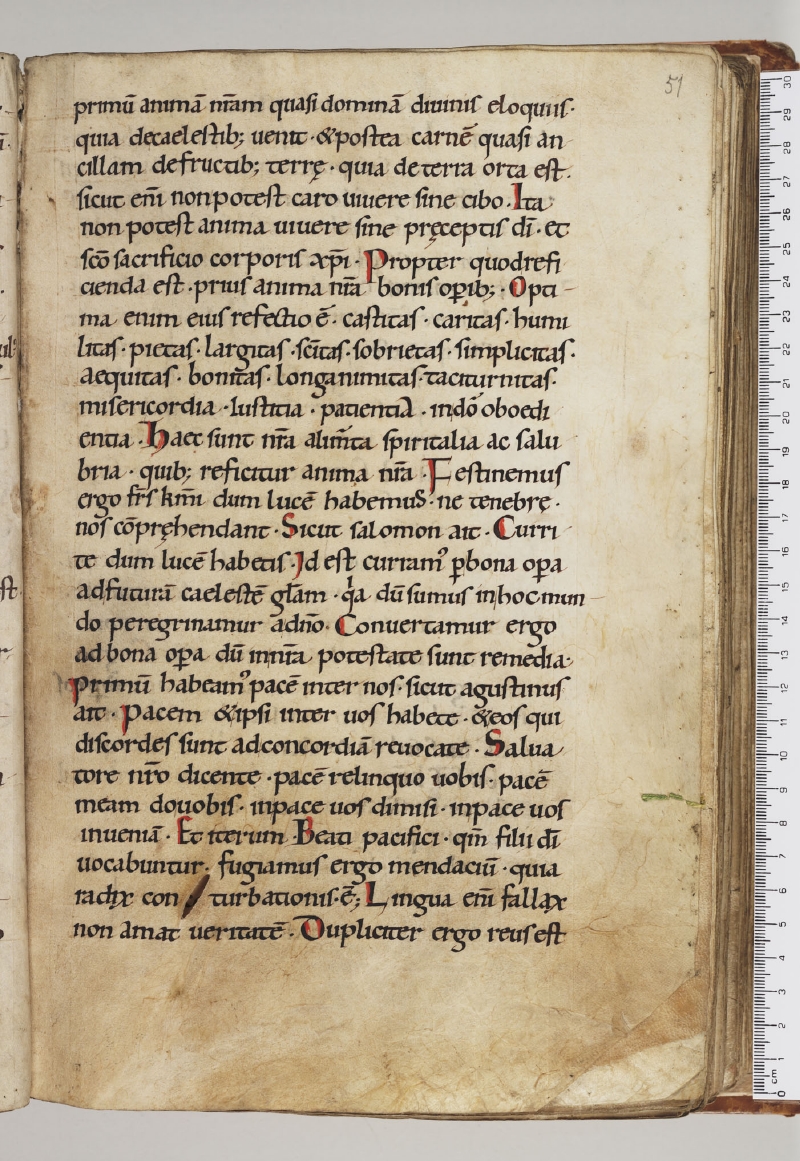 51
primū animā nr̄am quasi dominā diuinis eloquiis·
quia decaelestib; uenit ·&postea carnē quasi an
cillam defructib; terrę · quia deterra orta est.
sicut eni̅ nonpotest caro uiuere sine cibo · Ita
non potest anima uiuere sine pręceptis di̅ · et
sc̅o sacrificio corporis xp̅i · Propter quodrefi
cienda est · prius anima nr̅a bonis op̲ib; · Opti–
ma enim eius refectio ē· castitas · caritas· humi
litas· pietas· largitas ·sc̅itas·sobrietas· simplicitas·
aequitas· bonitas· longanimitas·taciturnitas·
misericordia ·Iustitia · patientia · indo̅ oboedi
entia · Haec sunt nr̅a alim̅ta spiritalia ac salu
bria · quib; reficitur anima nr̅a · Festinemus
ergo fr̅s km̅i dum lucē habemus· ne tenebrę ·
nos co̅pręhendant · Sicut salomon ait · Curri
te dum lucē habetis · Id est curram᾿ p̲bona op̲a
adfuturā caelestē gl̅am · qa dū sumus inhoc mun–
do peregrinamur adn̅o · Conuertamur ergo
ad bona op̲a dū innr̅a potestate sunt remedia·
Primū habeam᾿ pacē inter nos· sicut agustinus
ait · Pacem &ipsi inter uos habete · &eos qui
discordes sunt adconcordiā reuocate · Salua
tore nr̅o dicente · pacē relinquo uobis· pacē
meam douobis· inpace uos dimisi · inpace uos
inueniā · Et iterum · Beati pacifici · qm̅ filii di̅
uocabuntur. fugiamus ergo mendaciū · quia
radix con turbationis·ē; Lingua eni̅ fallax
non amat ueritatē · Dupliciter ergo reus est
30
29
28
27
26
25
24
23
22
21
20
19
18
17
16
15
14
13
12
11
10
9
8
7
6
5
4
3
2
1
cm
0